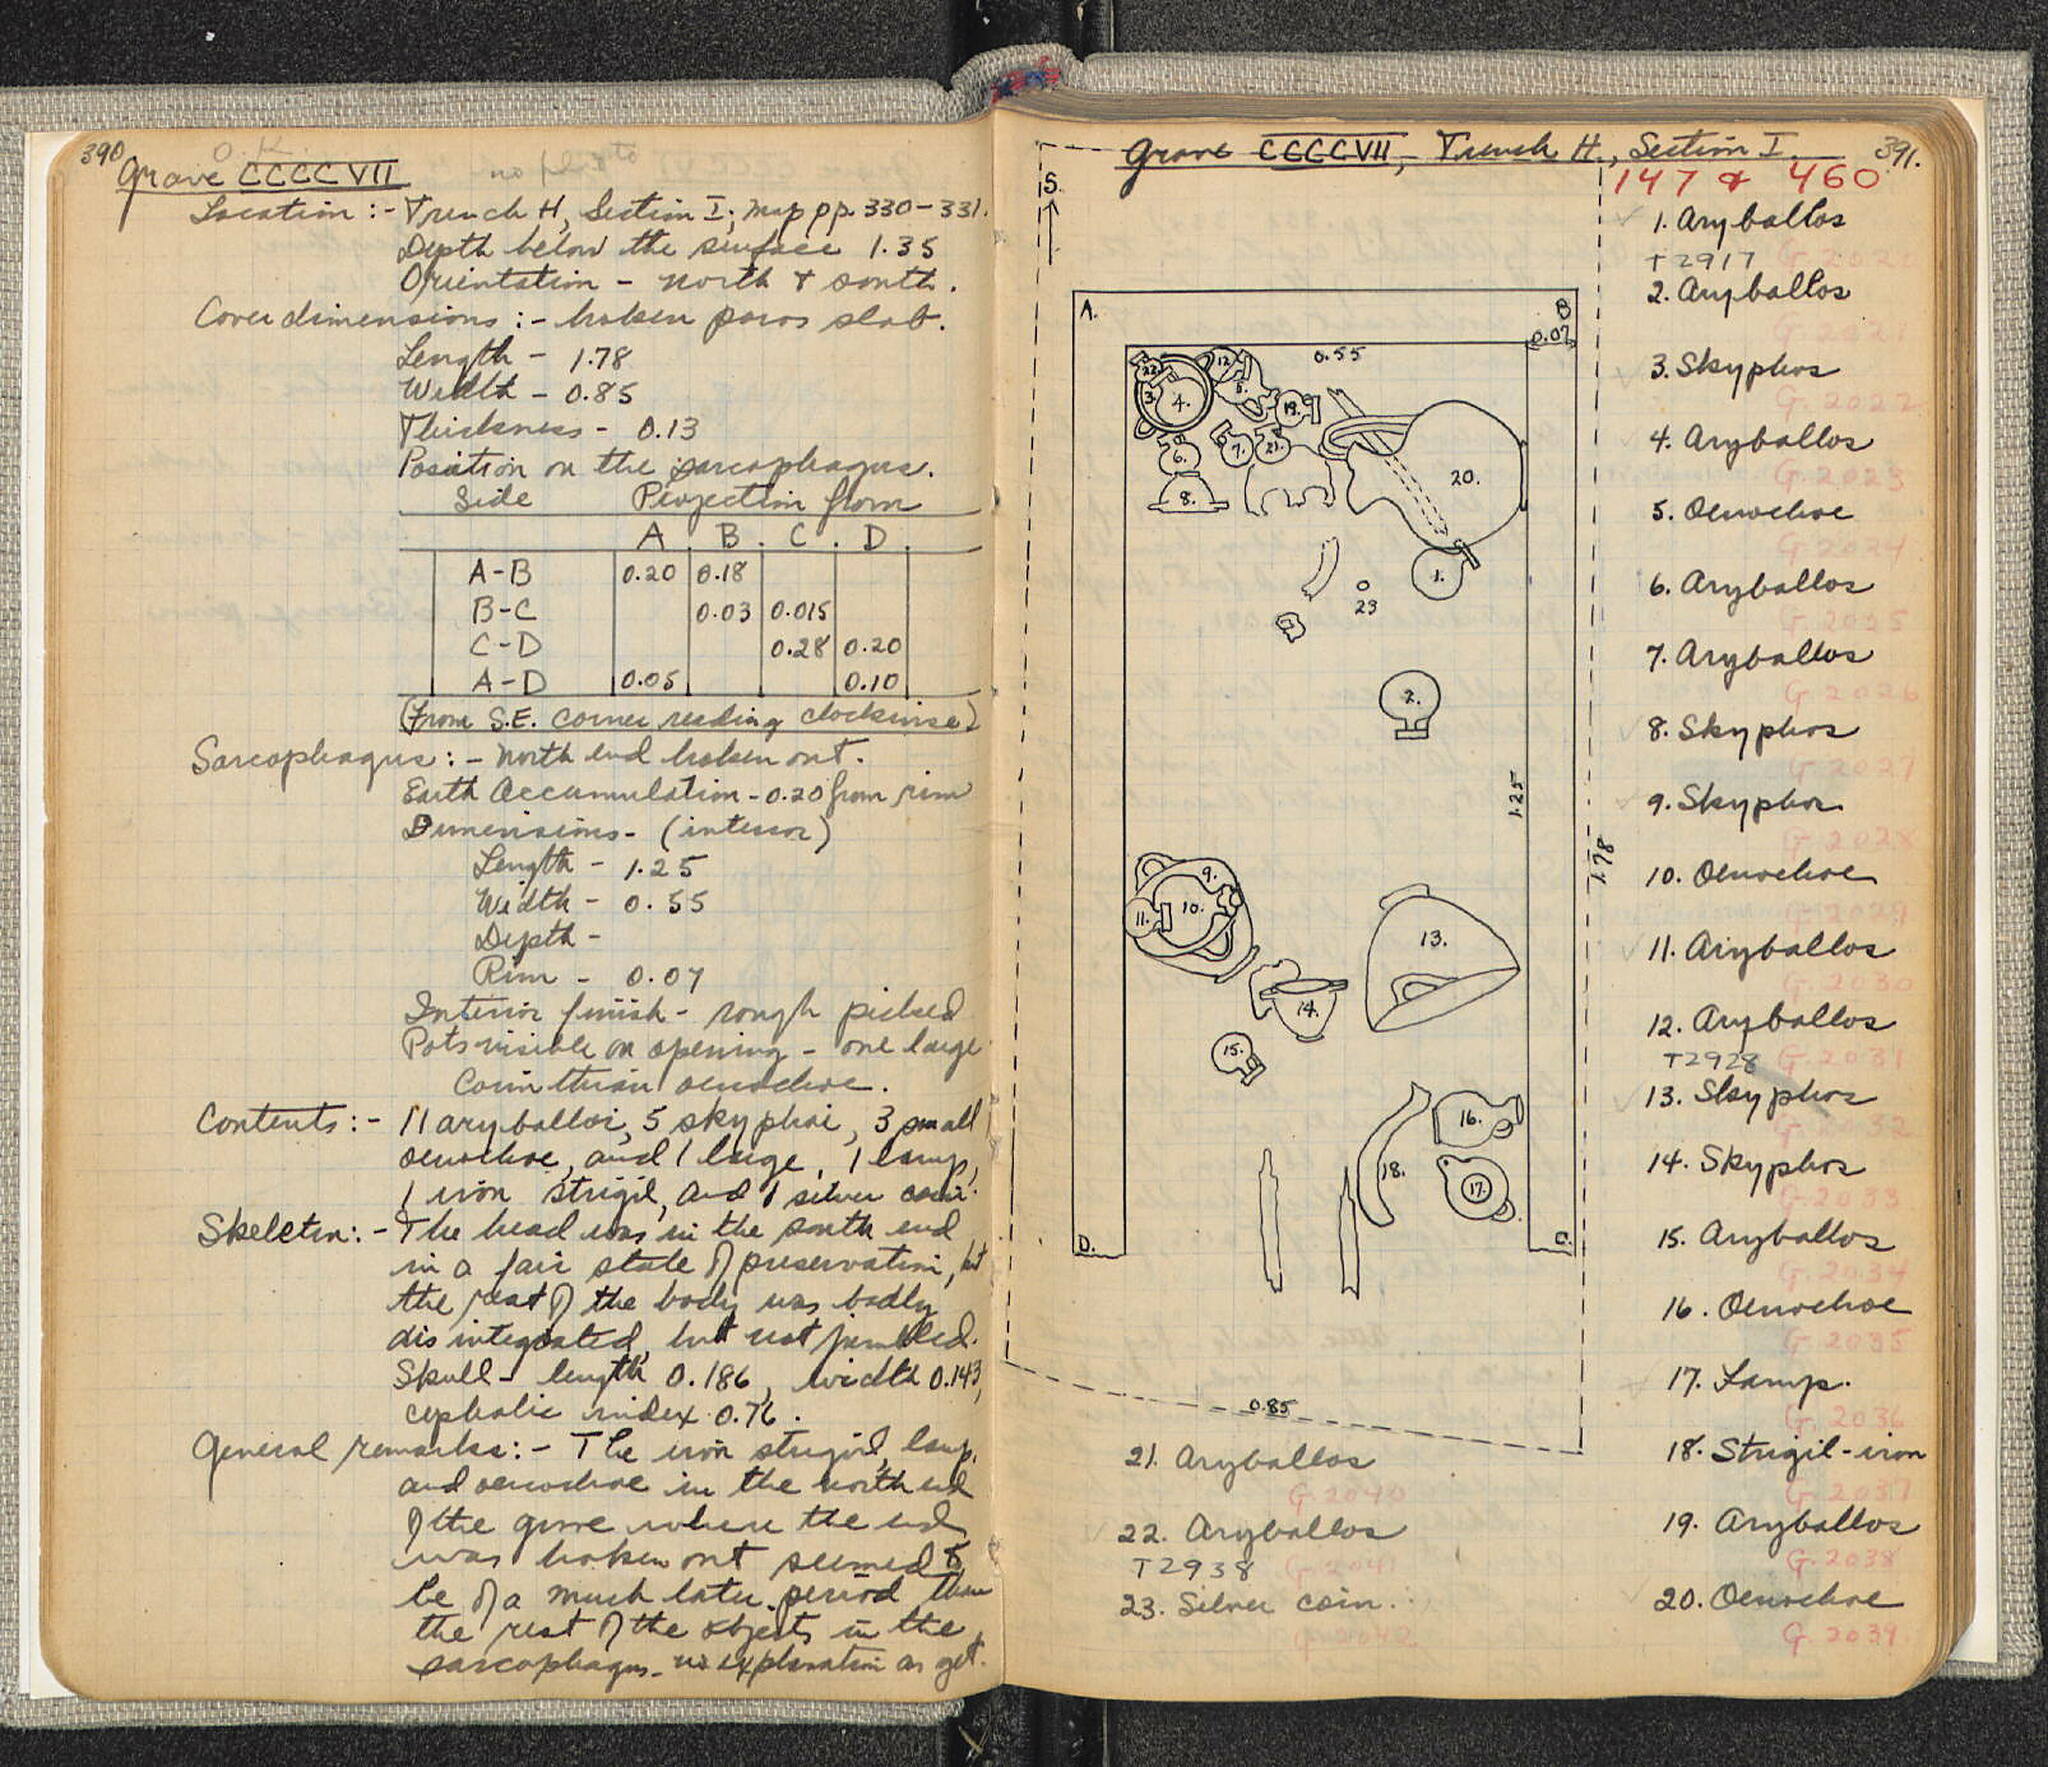 390
O.K.
Grave CCCCVII
no photo
Location :- Trench H, Section I; map pp. 330-331.
Depth below the surface 1.35
Orientation - north & south.
Cover dimensions :- broken poros slab.
Length - 1.78
Width - 0.85
Thickness - 0.13
Position on the sarcophagus.
Side Projection from
A B C D
A-B 0.20 0.18
B-C 0.03 0.015
C-D 0.28 0.20
A-D 0.05 0.10
(From S.E. corner reading clockwise)
Sarcophagus :- North end broken out.
Earth Accumulation - 0.20 from rim
Dimensions - (interior)
Length - 1.25
Width - 0.55
Depth -
Rim - 0.07
Interior finish - rough picked
Pots visible on opening - one large
Corinthian oenochoe.
Contents :- 11 aryballoi, 5 skyphoi, 3 small
oenochoe, and 1 large, 1 lamp,
1 iron strigil, and 1 silver coin.
Skeleton :- The head was in the south end
in a fair state of preservation, but
the rest of the body was badly
disintegrated, but not jumbled.
Skull - length 0.186, width 0.143,
cephalic index 0.76.
General remarks :- The iron strigil, lamp,
and oenochoe in the north end
of the grave where the end
was broken out seemed to
be of a much later period than
the rest of the objects in the
sarcophagus - no explanation as yet.
Grave CCCCVII, Trench H., Section I. 391.
147 & 460
S.
A. B
0.07
0.55
22 12
3. 4. 5. 19.
6. 7. 21.
8. 20.
1.
23
2.
1.25
1.78
9.
11. 10.
13.
14.
15.
16.
18.
17.
D. C.
0.85
1. Aryballos
T2917 G 2020
2. Aryballos
G 2021
3. Skyphos
G. 2022
4. Aryballos
G. 2023
5. Oenochoe
G. 2024
6. Aryballos
G. 2025
7. Aryballos
G. 2026
8. Skyphos
G 2027
9. Skyphos
G. 2028
10. Oenochoe
G. 2029
11. Aryballos
G. 2030
12. Aryballos
T2928 G. 2031
13. Skyphos
G. 2032
14. Skyphos
G. 2033
15. Aryballos
G. 2034
16. Oenochoe
G. 2035
17. Lamp.
G. 2036
18. Strigil - iron
G. 2037
19. Aryballos
G. 2038
20. Oenochoe
G. 2039
21. Aryballos
G 2040
22. Aryballos
T2938 G 2041
23. Silver coin.
G 2042